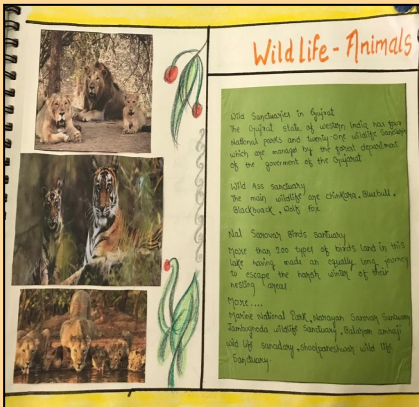 Wildlife - Animals
Wild Sanctuaries in Gujrat
The Gujrat state of western India has four
National parks and twenty-one wildlife Sanctuary
which are manage by the forest department
of the goverment of the Gujarat
Wild Ass sanctuary
The main wildlife are chinkara, Bluebull,
Blackbuck, Wolf, fox
Nal Sarovar Birds Santuary
More than 200 types of birds land in this
lake having made an equally long journey
to escape the harsh winter of their
nesting areas
More....
Marine National Park, Narayan Sarovar Santuary
Jambughoda wildlife Sanctuary, Balaram ambaji
wild life sancutary, shoolpaneshwar wild life
Sanctuary.